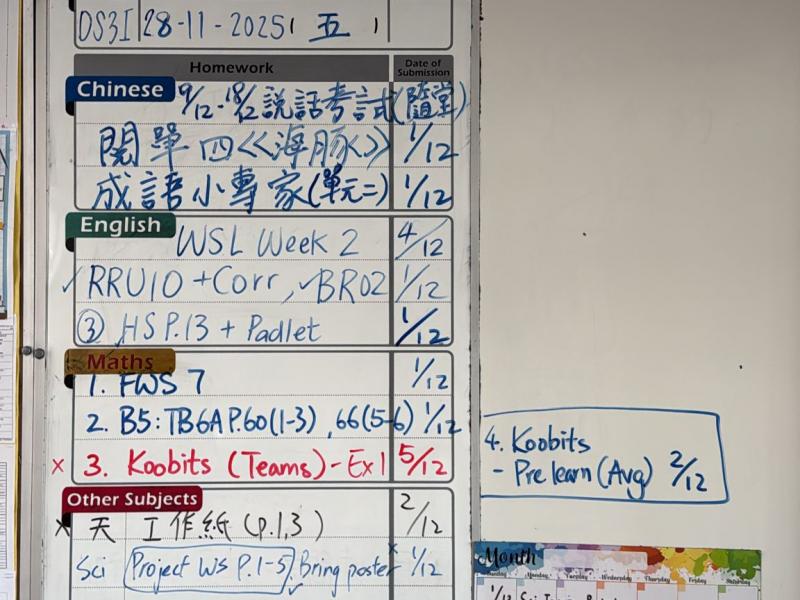 DS3I 28-11-2025 ( 五 )
Homework Date of Submission
Chinese 9/12-18/12 說話考試(隨堂)
閱單四《海豚》 1/12
成語小專家(單元二) 1/12
English WSL Week 2 4/12
✓RRU10 + Corr, ✓BR02 1/12
③ HS P.13 + Padlet 1/12
Maths
1. FWS 7 1/12
2. B5: TB6A P.60(1-3), 66(5-6) 1/12
x 3. Koobits (Teams) - Ex1 5/12
4. Koobits
- Pre learn (Avg) 2/12
Other Subjects
x 天 工作紙 (p.1,3) 2/12
Sci Project WS P.1-5, Bring poster x 1/12
Month
Monday Tuesday Wednesday Thursday Friday Saturday